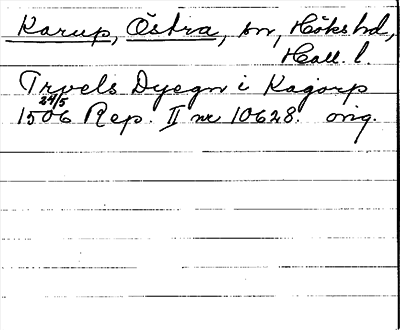 Karup, Östra, sn, Höks hd,
Hall. l.
Truels Dyegn i Kagorp
1506 24/5 Rep. II nr 10628. orig.